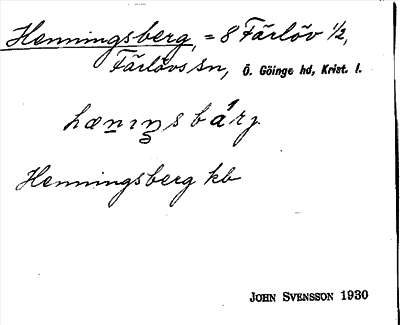 Henningsberg, = 8 Färlöv ½,
Färlövs sn, Ö. Göinge hd, Krist. l.
hænıŋsbárj
Henningsberg kb
JOHN SVENSSON 1930